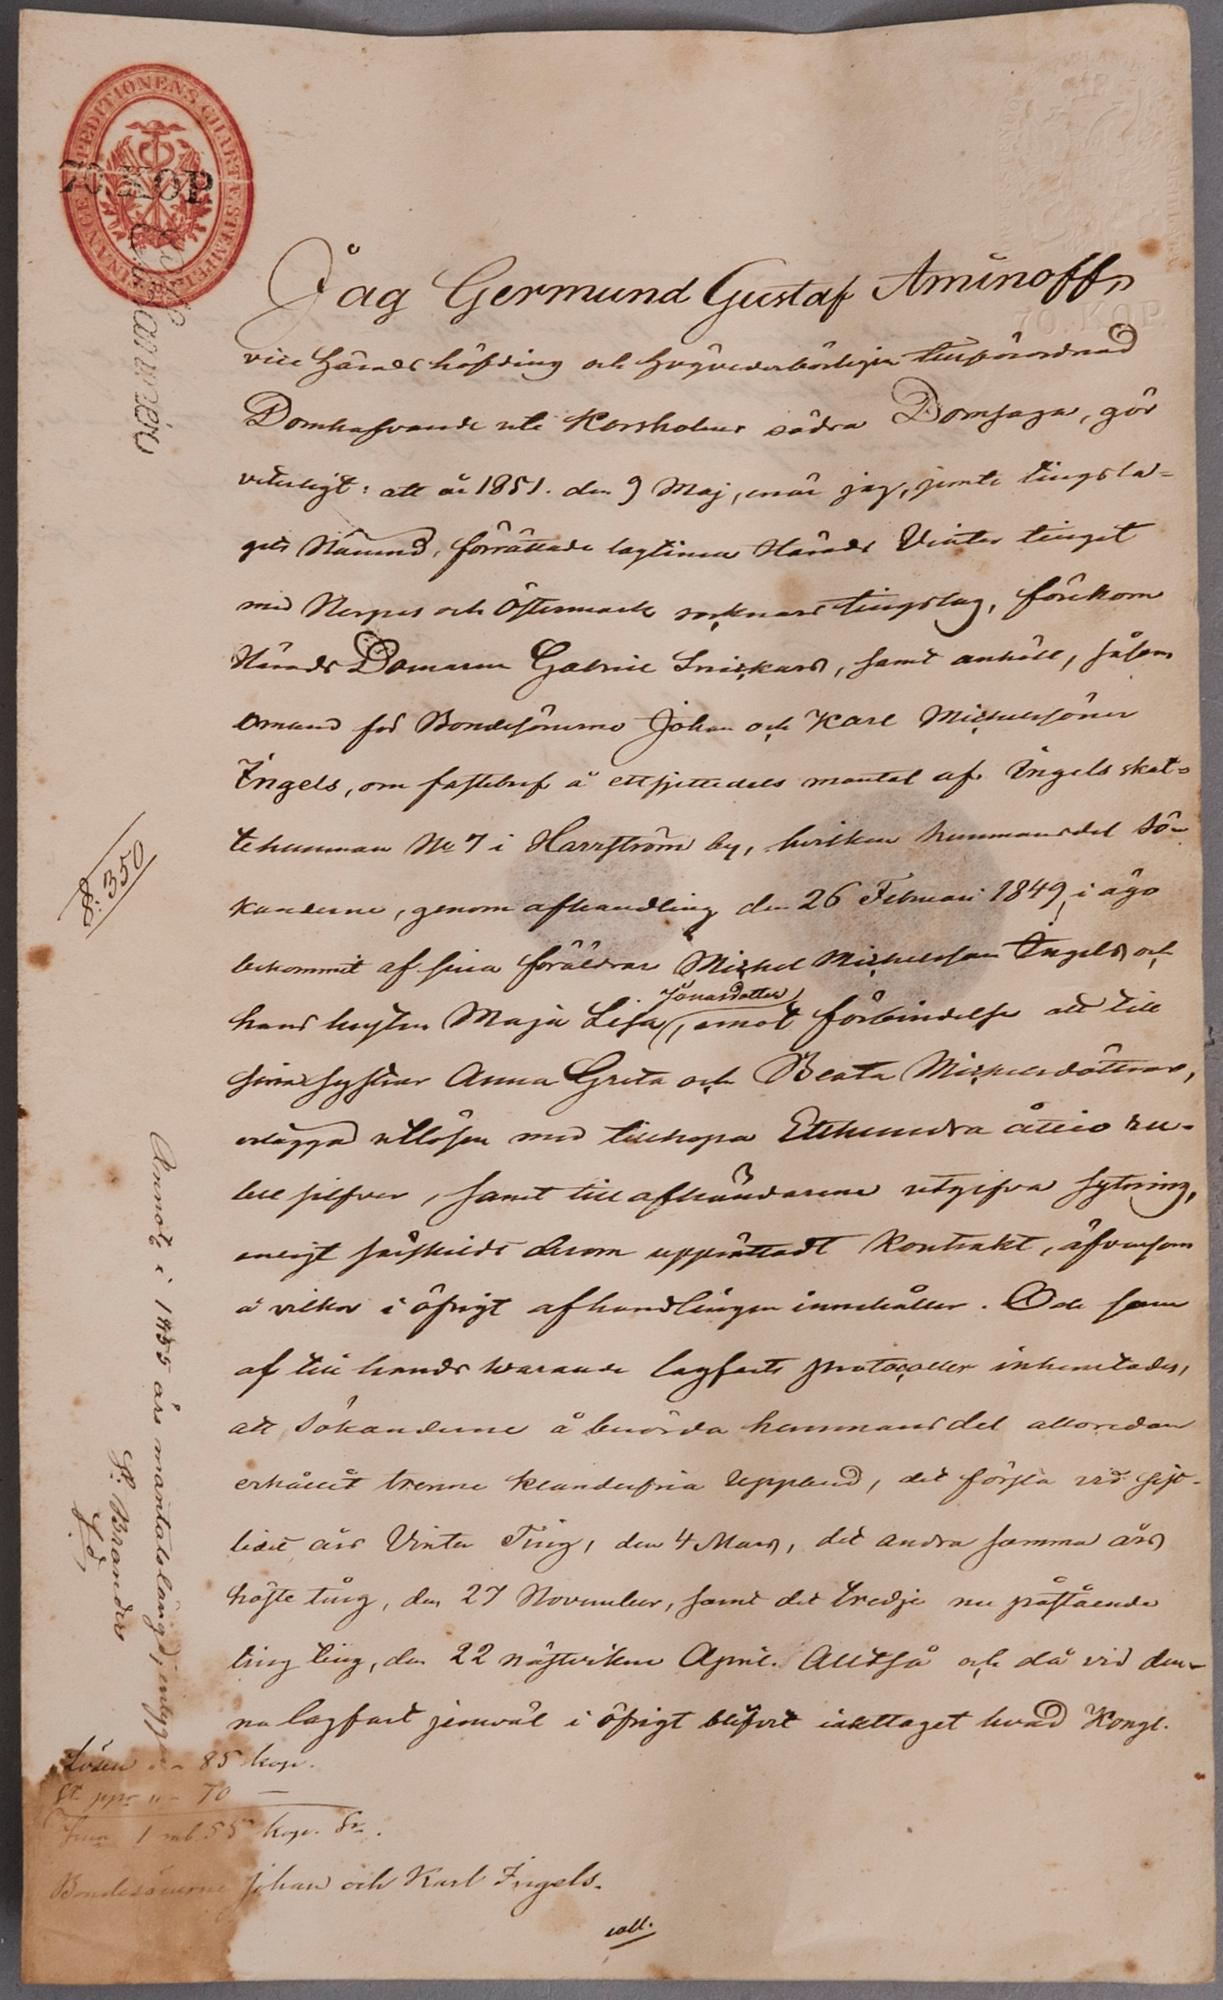 FINANCE EXPEDITIONENS CHARTÆ STEMPEL
70 KOP.
70. KOP.
Jag Germund Gustaf Aminoff,
vice Häradshöfding och högvederbörligen tillförordnad
Domhafvande uti Korsholms södra Domsaga, gör
veterligt: att år 1851. den 9 Maj, enär jag, jemte tingsla-
gets Nämnd, förrättade lagtima Härads Vinter tinget
med Nerpes och Östermark soknars tingslag, förekom
Härads Domaren Gabriel Snickars, samt anhöll, såsom
ombud för Bondesönerne Johan och Karl Mickelssöner
Ingels, om fastebref å ett sjettedels mantal af Ingels skat-
tehemman No 7 i Harrström by, hvilken hemmansdel sö-
kanderne, genom afhandling den 26 Februari 1849, i ägo
bekommit af sina föräldrar Mickel Mickelsson Ingels och
hans hustru Maja Lisa Jonasdotter, emot förbindelse att till
sina systrar Anna Greta och Beata Mickelsdöttrar,
erlägga utlösen med tillhopa Etthundra åttio ru-
bel silfver, samt till afhändarene utgifva sytning,
enligt särskildt derom upprättadt Kontrakt, äfvensom
å vilkor i öfrigt afhandlingen innehåller. Och som
af till hands warande lagfarts protocoller inhemtades,
att sökanderne å berörda hemmansdel allaredan
erhållit trenne klanderfria Uppbud, det första vid sist-
lidit års Vinter Ting, den 4 Mars, det andra samma års
höste ting, den 27 November, samt det tredje nu påstående
ting, den 22 nästvikne April. Alltså och då vid den-
na lagfart jemväl i öfrigt blifvit iakttaget hvad Kongl.
§: 350
Annotz i 1855 års mantalslängd, intygar
S: Brander
Lösen 85 kop.
St. ppr 70 —
Summa 1 rub. 55 kop. Sr.
Bondesönerne Johan och Karl Ingels.
coll.